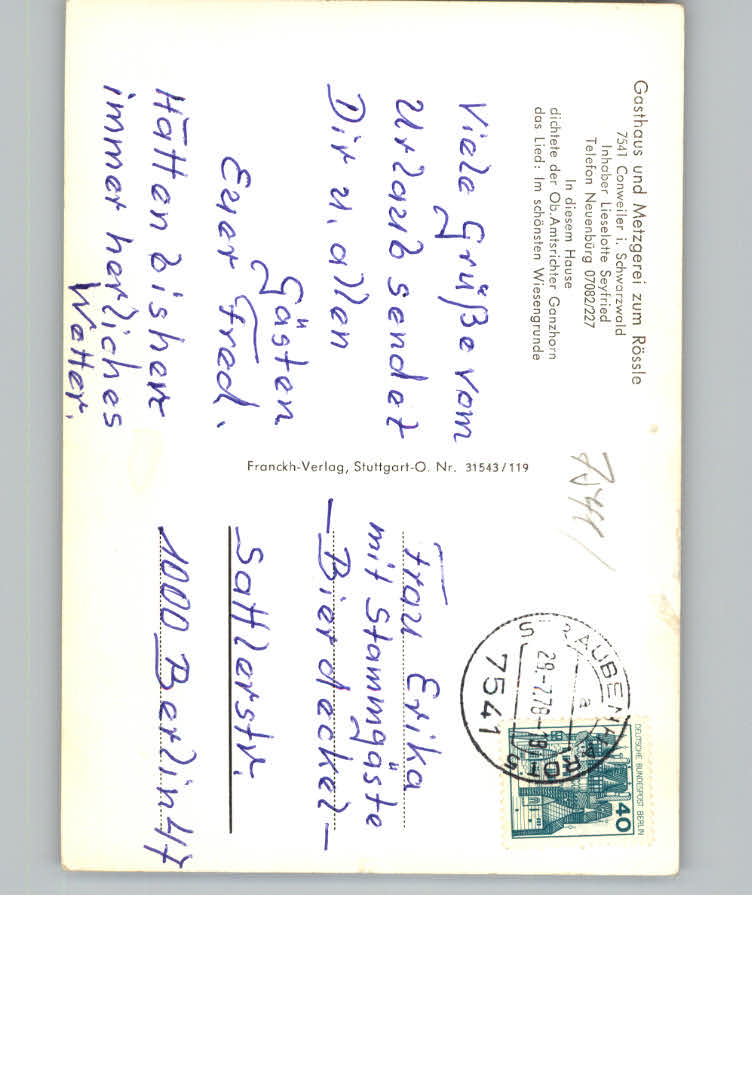 Gasthaus und Metzgerei zum Rössle
7541 Conweiler i. Schwarzwald
Inhaber Lieselotte Seyfried
Telefon Neuenbürg 07082/227
In diesem Hause
dichtete der Ob.Amtsrichter Ganzhorn
das Lied: Im schönsten Wiesengrunde
Viele Grüße vom
Urlaub sendet
Dir u. allen
Gästen
Euer Fred.
Hatten bisher
immer herliches
Wetter.
Franckh-Verlag, Stuttgart-O. Nr. 31543/119
7541
STRAUBENHARDT 5
a
29.-7.78-18
7541
DEUTSCHE BUNDESPOST BERLIN
40
Frau Erika
mit Stammgäste
- Bierdeckel -
Sattlerstr.
1000 Berlin 47